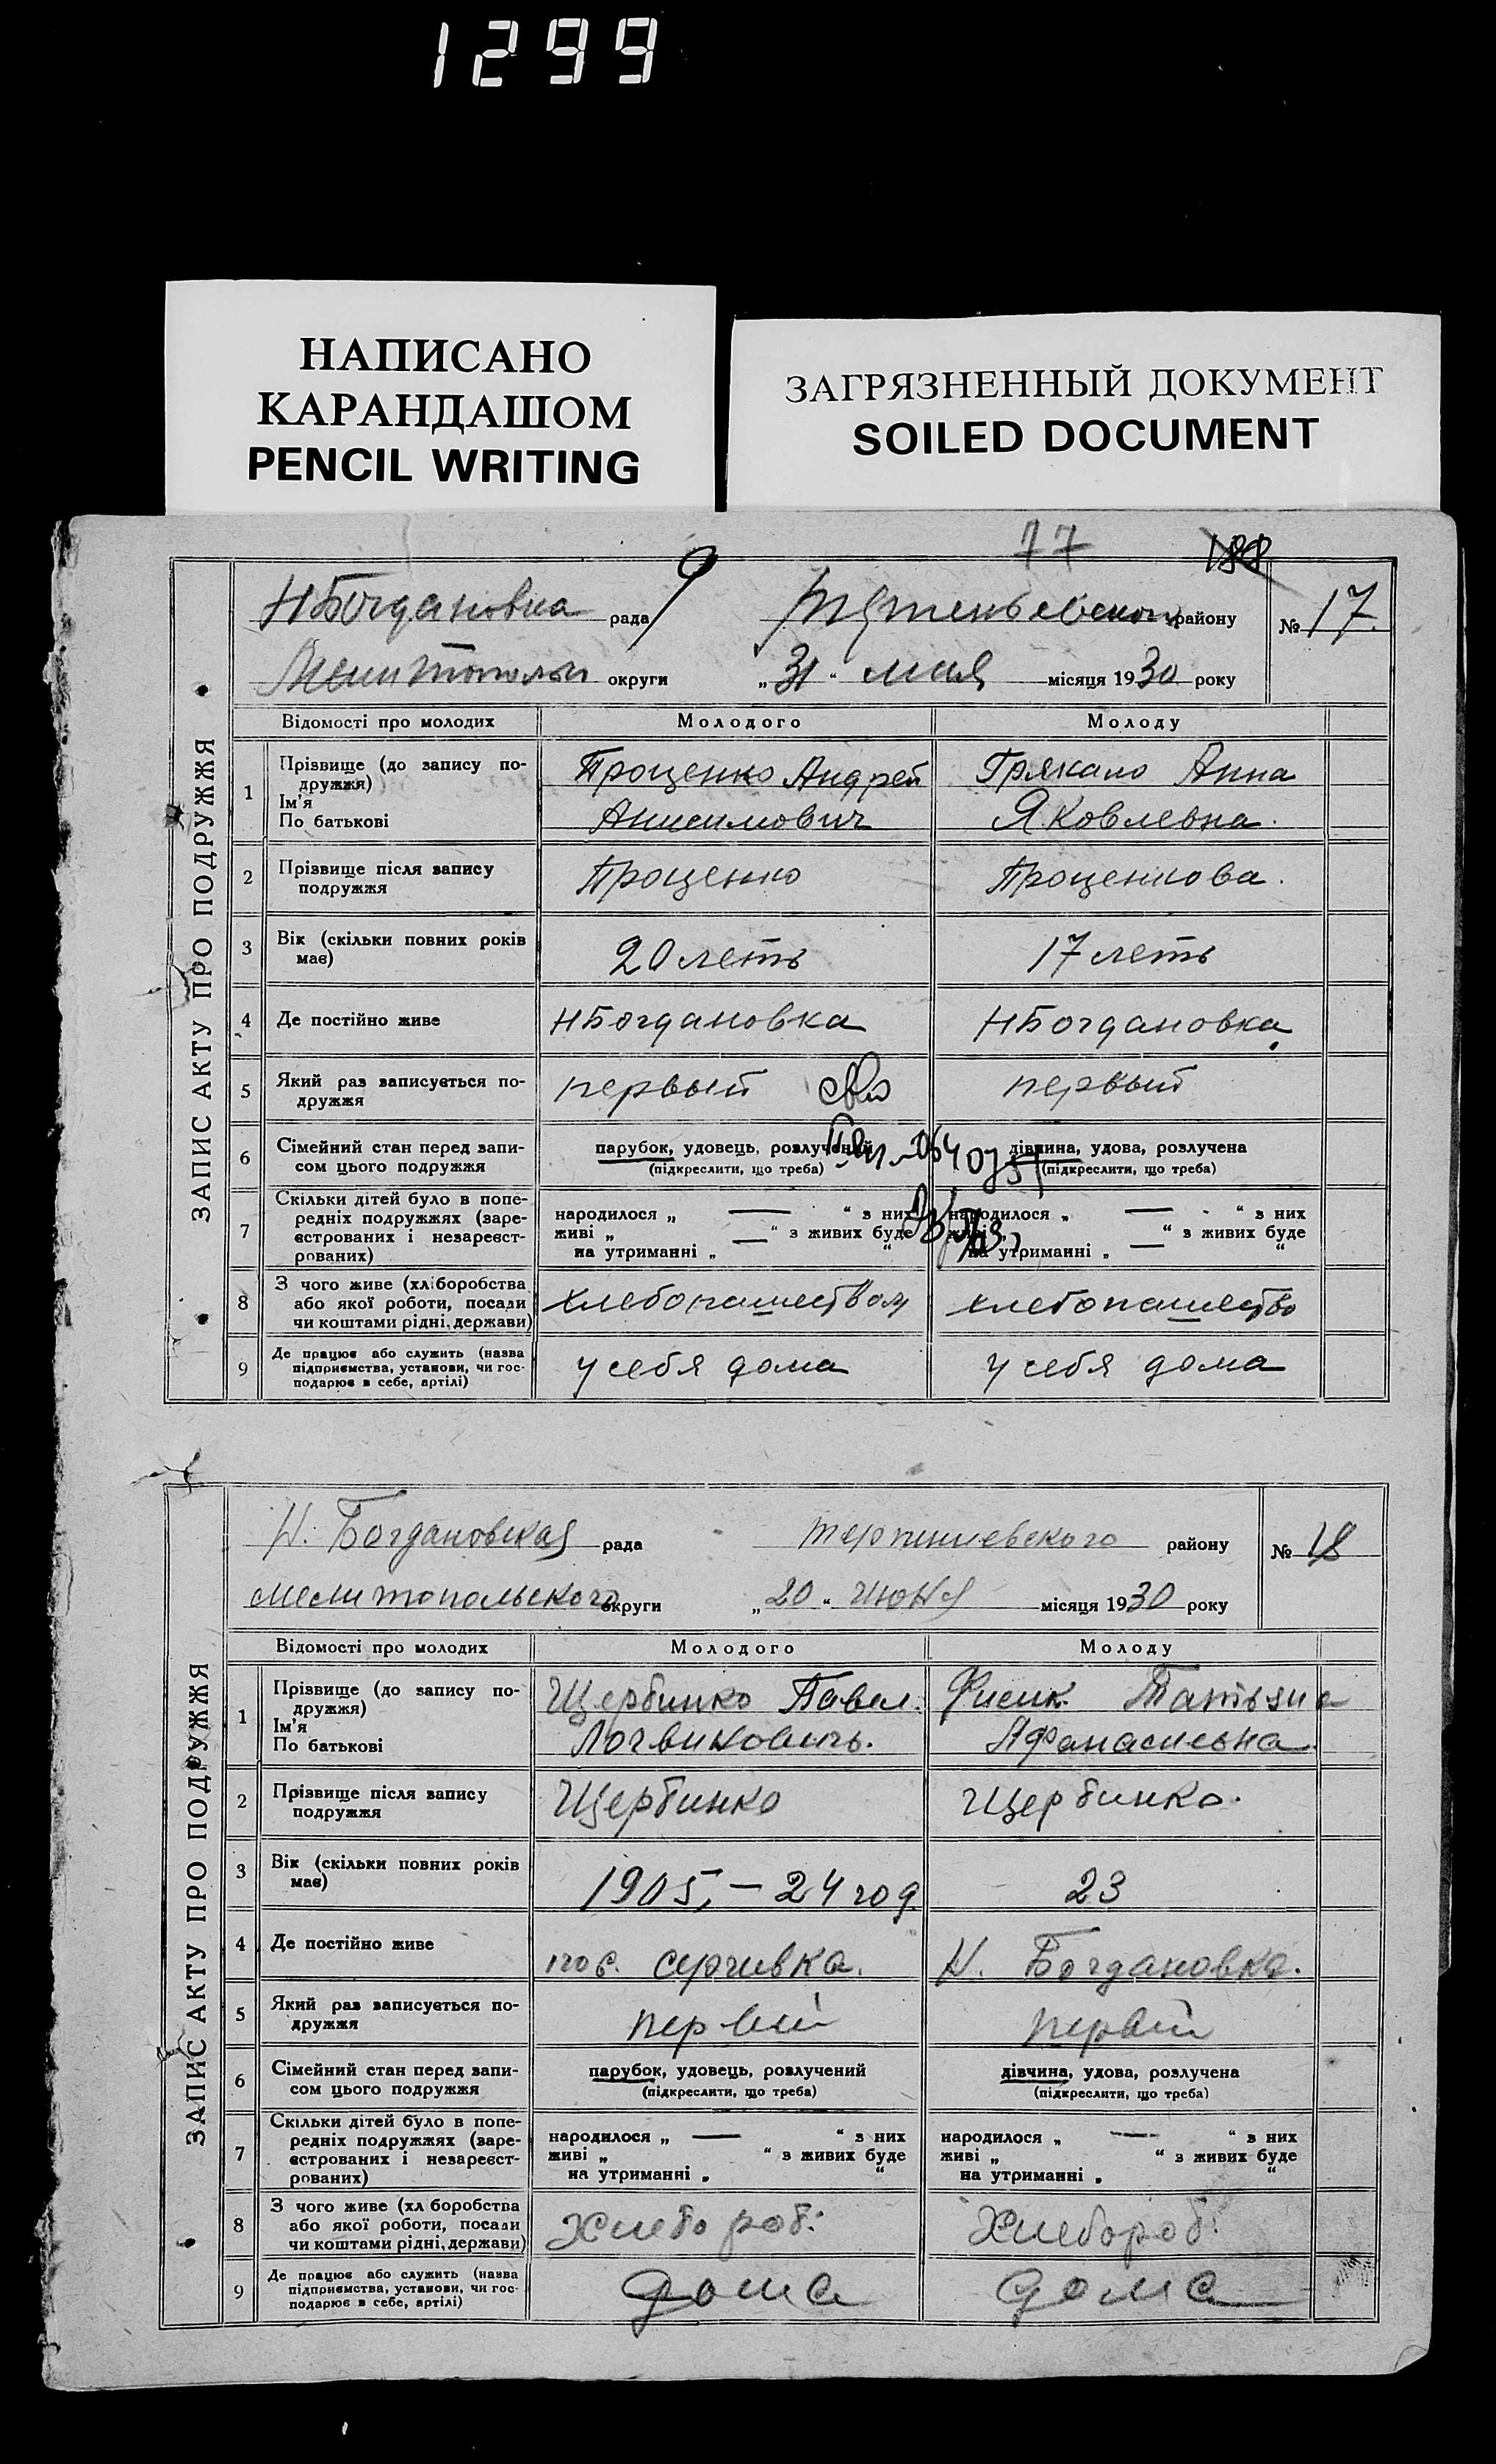 1299
НАПИСАНО
КАРАНДАШОМ
PENCIL WRITING
ЗАГРЯЗНЕННЫЙ ДОКУМЕНТ
SOILED DOCUMENT
77
188
ЗАПИС АКТУ ПРО ПОДРУЖЖЯ
НБогдановка рада району № 17.
округи „31“ мая місяця 1930 року
Відомості про молодих Молодого Молоду
1 Прізвище (до запису по-
дружжя)
Ім'я
По батькові
Проценко Андрей
Анисимович
Грякало Анна
Яковлевна.
2 Прізвище після запису
подружжя
Проценко
Проценкова.
3 Вік (скільки повних років
має)
20 леть
17 леть
4 Де постійно живе
НБогдановка
НБогдановка
5 Який раз записується по-
дружжя
первый
первый
6 Сімейний стан перед запи-
сом цього подружжя
парубок, удовець, розлучений
(підкреслити, що треба)
дівчина, удова, розлучена
(підкреслити, що треба)
7 Скільки дітей було в попе-
редніх подружжях (заре-
єстрованих і незареєст-
рованих)
народилося „ — “ з них
живі „ — “ з живих буде
на утриманні „ “
народилося „ — “ з них
живі „ “ з живих буде
на утриманні „ — “
8 З чого живе (хліборобства
або якої роботи, посади
чи коштами рідні, держави)
хлебопашеством
хлебопашество
9 Де працює або служить (назва
підприємства, установи, чи гос-
подарює в себе, артілі)
у себя дома
у себя дома
ЗАПИС АКТУ ПРО ПОДРУЖЖЯ
Н. Богдановская рада терпениевского району № 18
мелитопольского округи „20“ июня місяця 1930 року
Відомості про молодих Молодого Молоду
1 Прізвище (до запису по-
дружжя)
Ім'я
По батькові
Щербинко Павел.
Логвиновичь.
Татьяна
Афанасиевна
2 Прізвище після запису
подружжя
Щербинко
Щербинко.
3 Вік (скільки повних років
має)
1905, — 24 год.
23
4 Де постійно живе
Н. Богдановка.
5 Який раз записується по-
дружжя
первий
первий
6 Сімейний стан перед запи-
сом цього подружжя
парубок, удовець, розлучений
(підкреслити, що треба)
дівчина, удова, розлучена
(підкреслити, що треба)
7 Скільки дітей було в попе-
редніх подружжях (заре-
єстрованих і незареєст-
рованих)
народилося „ — “ з них
живі „ “ з живих буде
на утриманні „ “
народилося „ — “ з них
живі „ “ з живих буде
на утриманні „ “
8 З чого живе (хл боробства
або якої роботи, посади
чи коштами рідні, держави)
Хлебороб.
Хлебороб.
9 Де працює або служить (назва
підприємства, установи, чи гос-
подарює в себе, артілі)
дома
дома